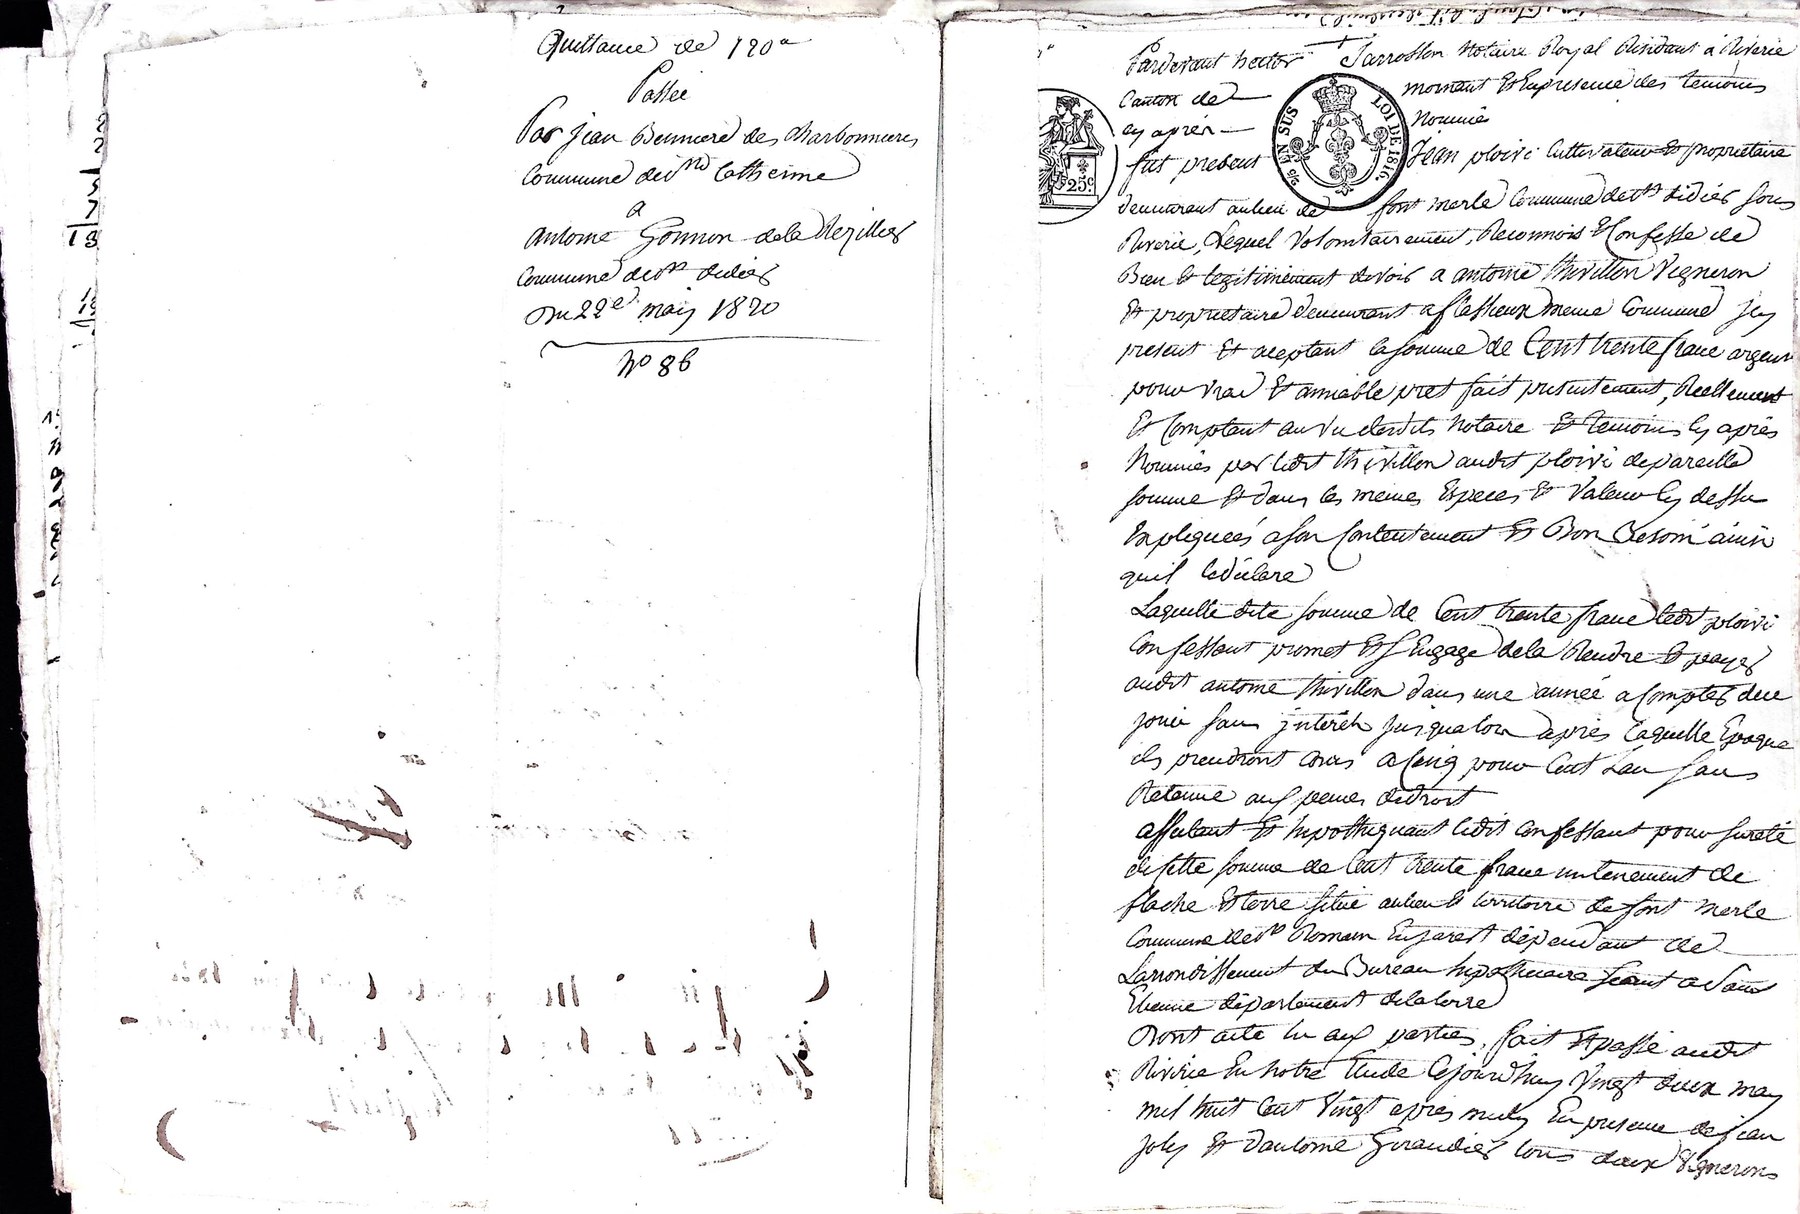 Quittance de 120
Passée
Par jean Bennier des Charbonnieres
Commune de Ste Catherine
a
antoine Gonnon de la Rezillier
Commune de st didier
Du 22e may 1820
No 86
Pardevant hector Jarrosson Notaire Royal Residant a Riverie
Canton de mornant Et En presence des temoins
cy aprèr Nommés
fut present Jean ploivi Cultivateur Et propriétaire
demeurant au lieu de font merle Commune de st didier sous
Riverie, Lequel Volontairement, Reconnois & Confesse de
Bien & legitimement devoir a antoine thivillon Vigneron
Et propriétaire demeurant a flassieux meme Commune jcy
present Et aceptant la somme de Cent trente franc argent
pour vrai Et amiable pret fait presentement, Reellement
Et Comptant au vu desdits Notaire Et temoins Cy après
Nommés par ledit thivillon audit ploivi de pareille
somme Et dans les memes Especes Et Valeur Cy dessu
Expliquées a son Contentement Et Bon Besoin ainsi
quil le déclare
Laquelle dite somme de Cent trente franc ledit ploivi
Confessant promet Et s'Engage de la Rendre Et payer
audit antoine thivillon dans une année a Compter de ce
jour sans jnterêts jusqualors après laquelle Epoque
ils prendront cours a Cinq pour Cent Lan sans
Retenue aux peines de droit
affectant Et hipothequant ledit Confessant pour sureté
de cette somme de Cent trente franc un tenement de
flache Et terre situé au lieu & territoire de font merle
Commune de st Romain En jarest dépendant de
Larrondissement du Bureau hipothecaire séant a Saint
Etienne département de la loire
Dont acte lu aux parties, fait Et passé audit
Riverie En notre Etude Cejourdhuy Vingt deux may
mil huit Cent Vingt apres midy En presence de jean
joly Et d'antoine Giraudier tous deux Vignerons
EN SUS
LOI DE 1816.
25c